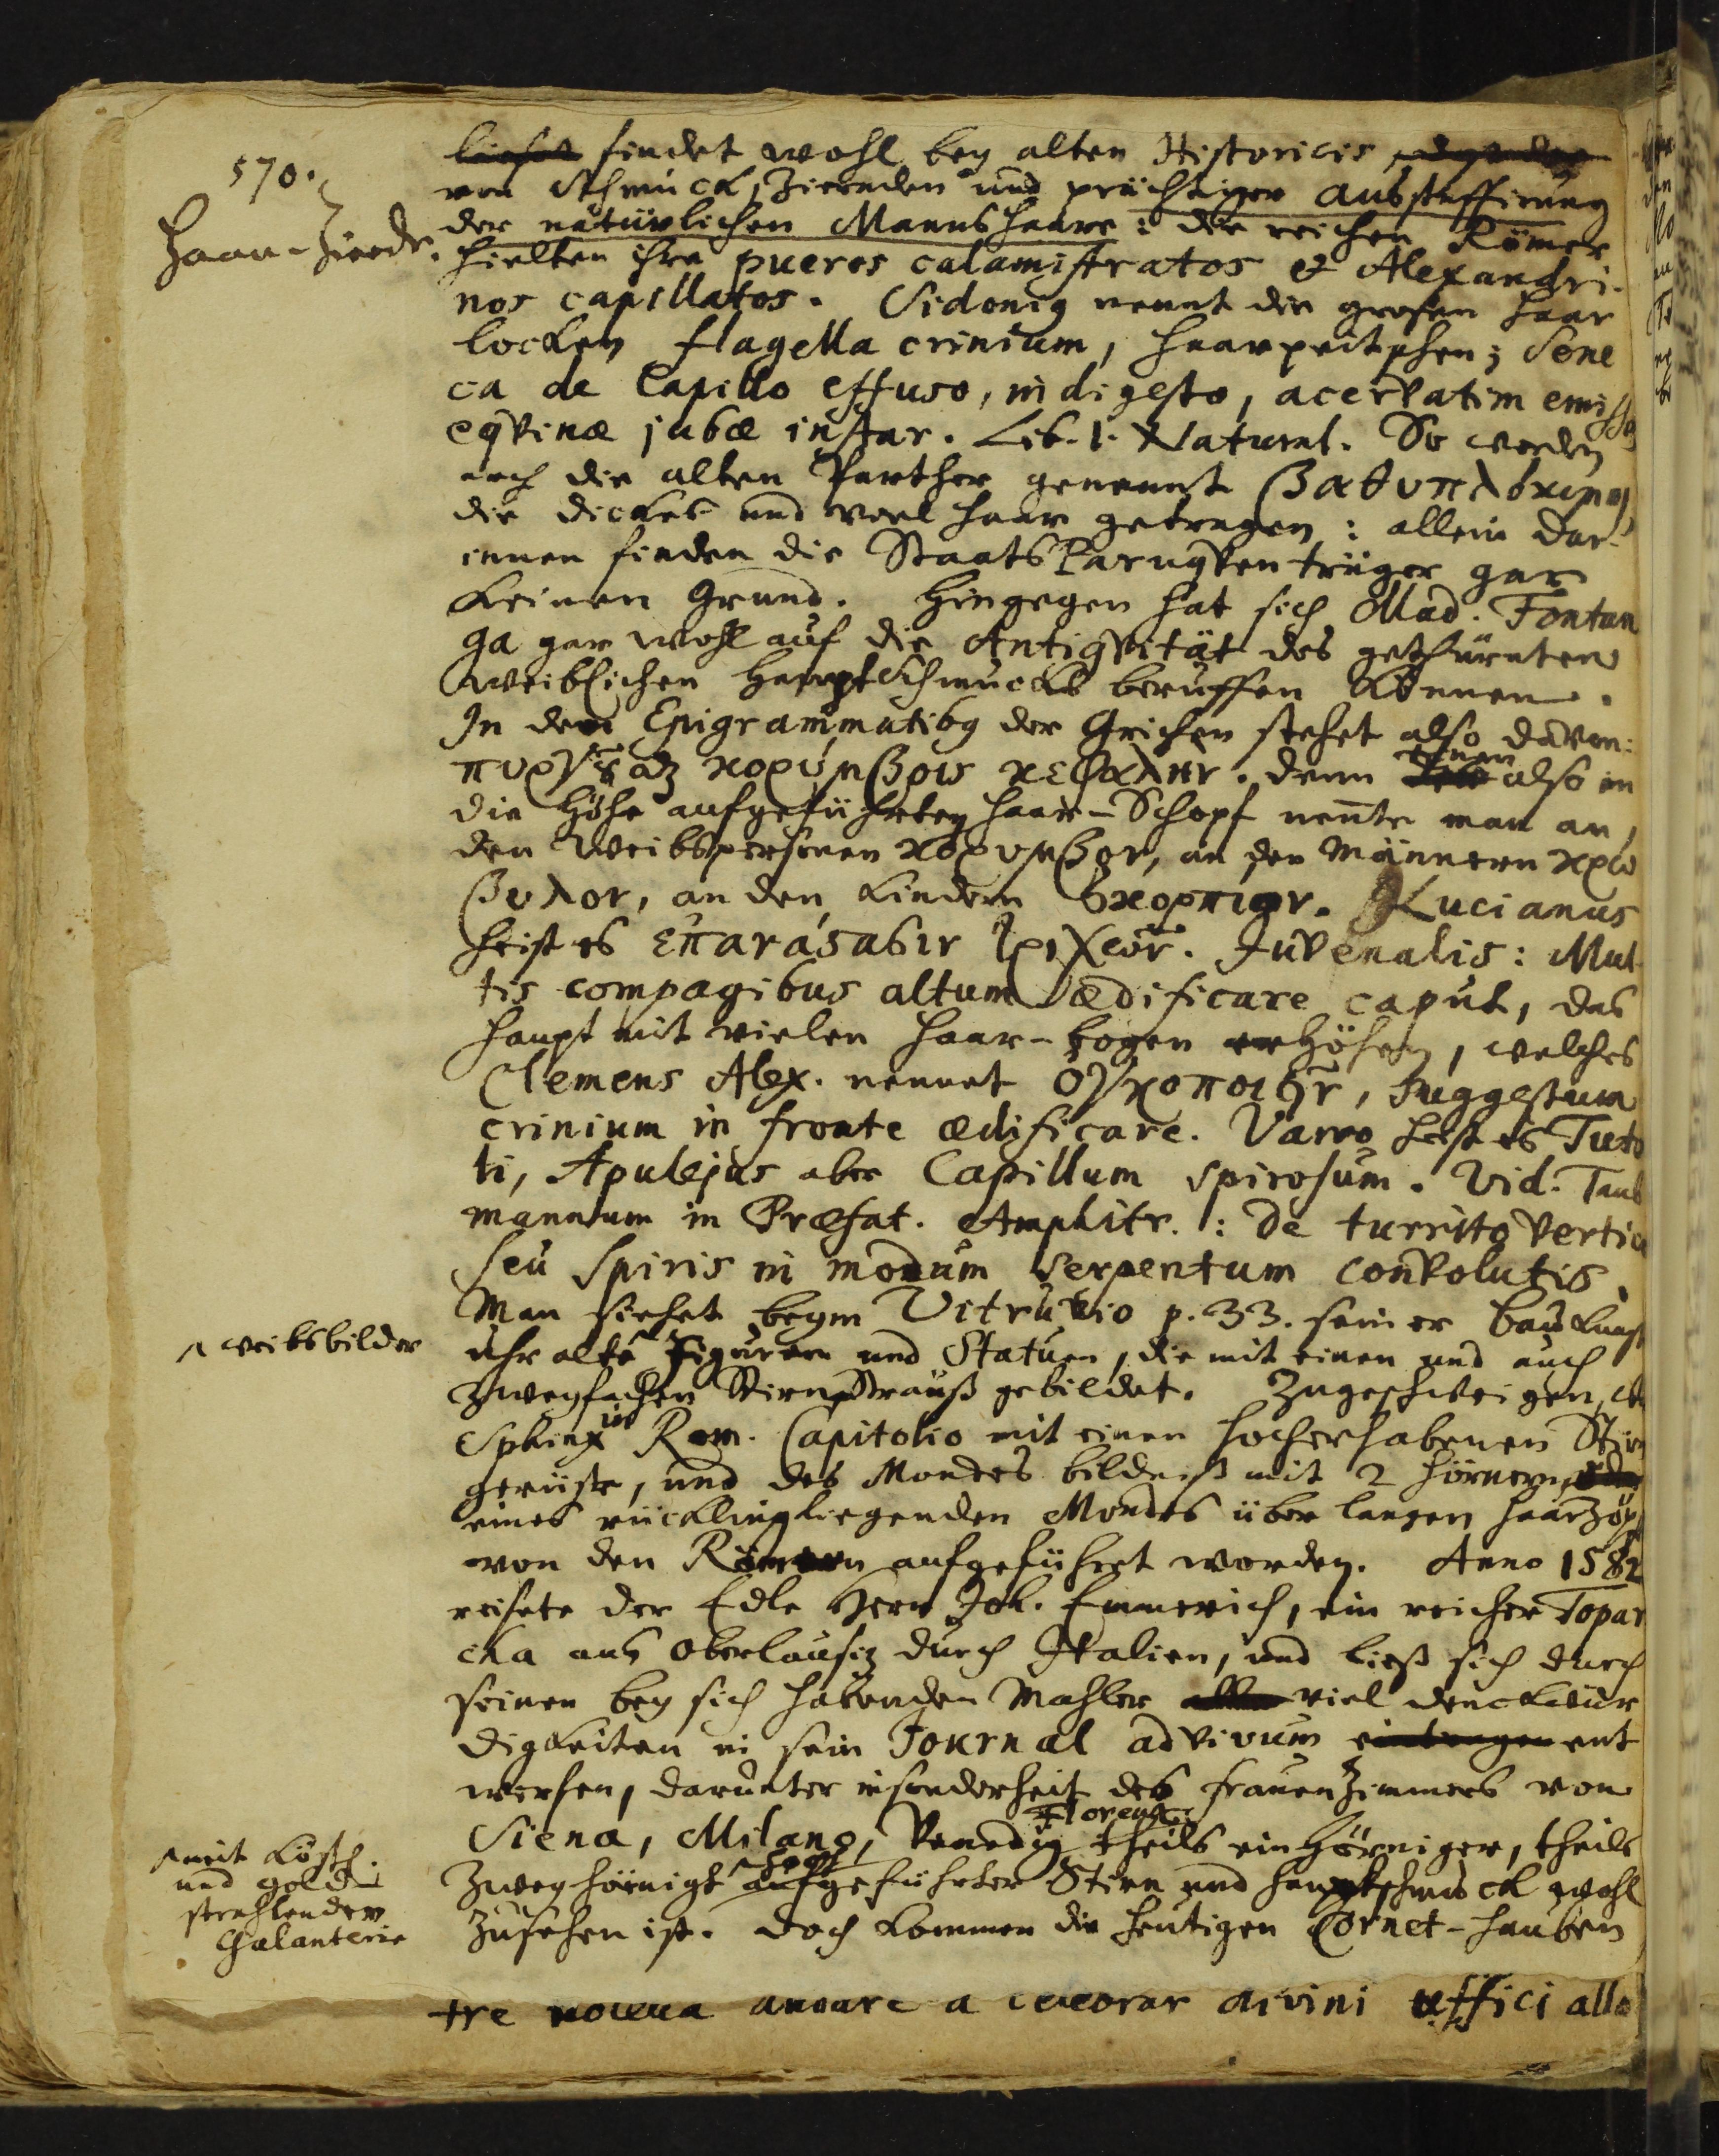 570.
Haar-Zierde.
findet wohl bey alten Historicis
von Schmuck, Zierden und prächtiger Ausstaffirung
der natürlichen Mannshaare: die reichen Römer
hielten ihre pueros calamistratos & Alexandri-
nos capillatos. Sidonius nennt die grosen Haar
locken flagella crinium, Haarpeitschen; Sene
ca de Capillo effuso, indigesto, acervatim emisso
eqvinæ jubæ instar. Lib. 1. Natural. So werden
auch die alten Parther genennt
die dickes und viel Haar getragen: allein dar-
innen finden die Staats Paruqventräger gar
keinen Grund. Hingegen hat sich Mad. Fontan
ga gar wohl auf die Antiqvität des gethürnten
weiblichen HauptSchmucks beruffen können.
In den Epigrammatibus der Grichen stehet also davon:
πυργῶσαι κορύμβοις κεφαλην. denn einen also in
die Höhe aufgeführten Haar-Schopf nennte man an
den Weibspersonen κορυμβον, an den Männern κρω
βυλον, an den Kindern σκορπιον. Lucianus
heist es επανάστασιν τριχῶν. Juvenalis: Mul
tis compagibus altum ædificare caput, das
Haupt mit vielen Haar-bogen erhöhen, welches
Clemens Alex. nennet ογκοποιεῖν, suggestum
crinium in fronte ædificare. Varro heist es Tutu
li, Apulejus aber Capillum spirosum. Vid. Taub
mannum in Præfat. Amphitr.: De turrito vertice
seu Spiris in modum serpentum convolutis.
Man siehet beym Vitruvio p. 33. seiner Baukunst
uhr alte Figuren und Statuen, die mit einen und auch
weibsbilder
zweyfachen Stirnstrauß gebildet. Zugeschweigen,
Sphinx in Rom. Capitolio mit einen hocherhabenen Stirn
gerüste, und des Mondes bildniß mit 2 Hörnern,
eines rücklingliegenden Mondes über langen Haarzöpf
von den Römern aufgeführt worden. Anno 1582
reisete der Edle Herr Joh. Emmerich, ein reicher Topar
cha aus Oberlausiz durch Italien, und ließ sich durch
seinen bey sich habenden Mahler viel denckwür
digkeiten in sein Journal ad vivum eintragen ent
werfen, darunter insonderheit des Frauenzimmers von
Siena, Milano, Florenz, Venedig theils einhörniger, theils
zweyhörnigt hoch aufgeführter Stirn und Hauptschmuck wohl
mit köstl.
und gold
strahlender
Galanterie
zusehen ist. Doch kommen die heutigen Cornet-hauben
tre andare a divini uffici alla